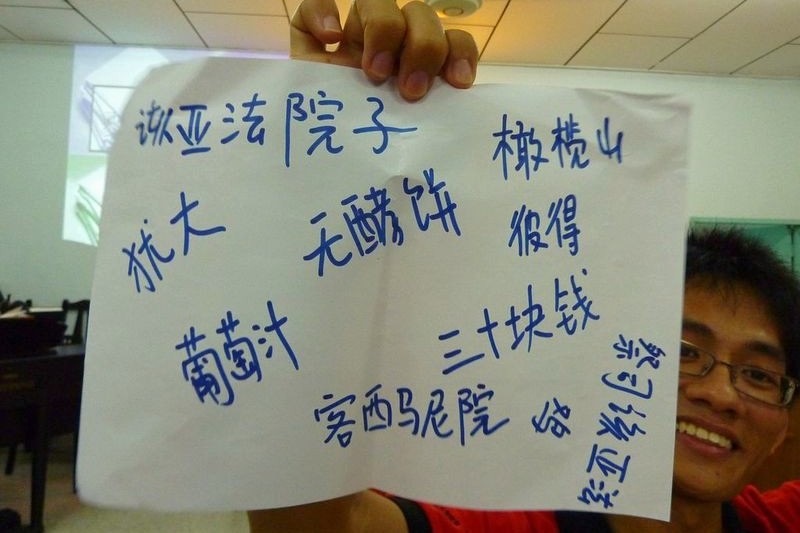 该亚法院子
橄榄山
犹大
无酵饼
彼得
葡萄汁
三十块钱
客西马尼院
鸡
祭司该亚法